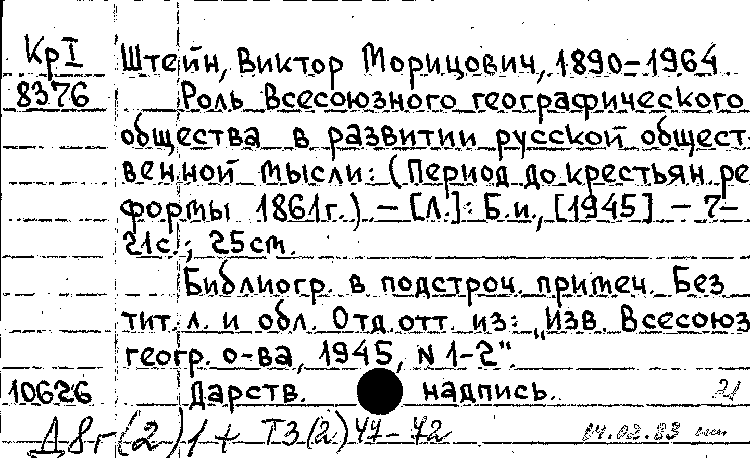 КрI Штейн, Виктор Морицович, 1890-1964.
8376 Роль Всесоюзного географического
общества в развитии русской общест-
венной мысли: (Период до крестьян. ре
формы 1861г.) – [Л.]: Б.и., [1945] – 7–
21с.; 25см.
Библиогр. в подстроч. примеч. Без
тит. л. и обл. Отд. отт. из: "Изв. Всесоюз
геогр. о-ва, 1945, N 1-2".
10626 Дарств. надпись.
Д8г(2)1 + Т3(2)47-72 04.02.83